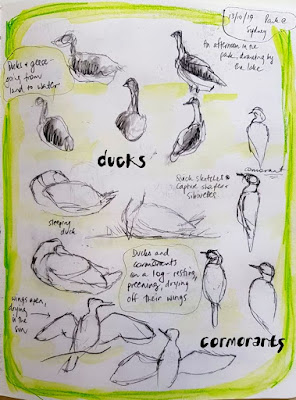 17/10/19
Sydney
An afternoon in the
park, drawing by
the lake
Ducks & geese
going from
land to water
ducks
cormorant
Quick sketches to
capture shapes &
silhouettes
sleeping
duck
Ducks and
cormorants
on a log - resting,
preening, drying
off their wings
wings open,
drying
in the
sun
cormorants